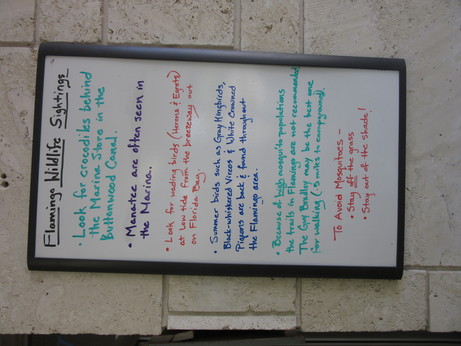 Flamingo Wildlife Sightings
• Look for crocodiles behind
the Marina Store in the
Buttonwood Canal.
• Manatee are often seen in
the Marina.
• Look for wading birds (Herons & Egrets)
at Low tide from the breezeway out
on Florida Bay.
• Summer birds such as Gray Kingbirds,
Black-whiskered Vireos & White Crowned
Pigeons are back & found throughout
the Flamingo area.
• Because of high mosquito populations
the trails in Flamingo are not recommended.
The Guy Bradley may be the best one
for walking (5 miles to campground).
To Avoid Mosquitoes –
• Stay off the grass
• Stay out of the shade!